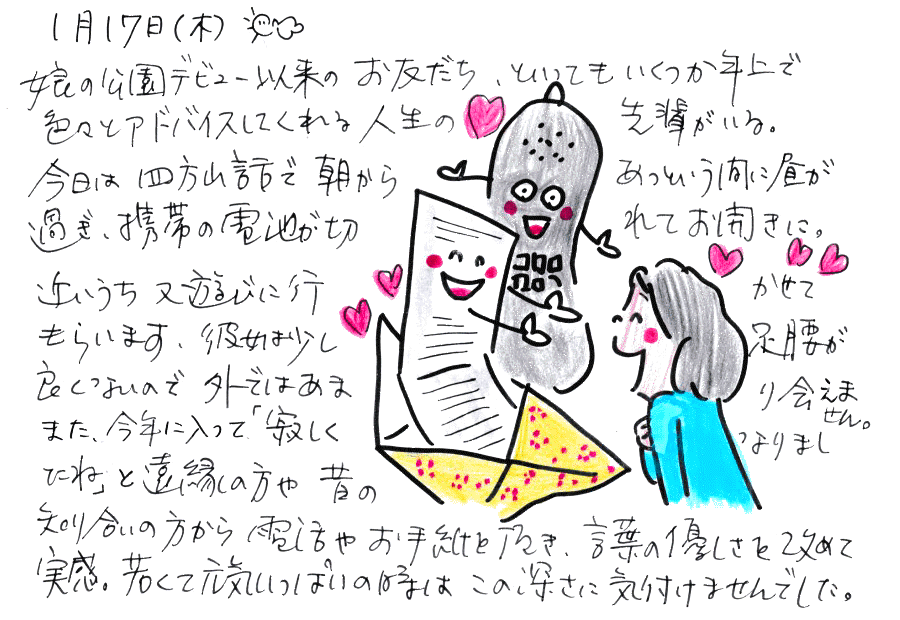 1月17日(木)
娘の公園デビュー以来の お友だち、といっても いくつか年上で
色々とアドバイスしてくれる 人生の 先輩がいる。
今日は 四方山話で 朝から あっという間に昼が
過ぎ、携帯の電池が切 れて お開きに。
近いうち 又 遊びに行 かせて
もらいます。彼女は少し 足腰が
良くないので 外ではあま り会えません。
また、今年に入って「寂しく なりまし
たね」と 遠縁の方や 昔の
知り合いの方から 電話や お手紙を頂き、言葉の優しさを 改めて
実感。若くて元気いっぱいの時は この深さに 気付けませんでした。